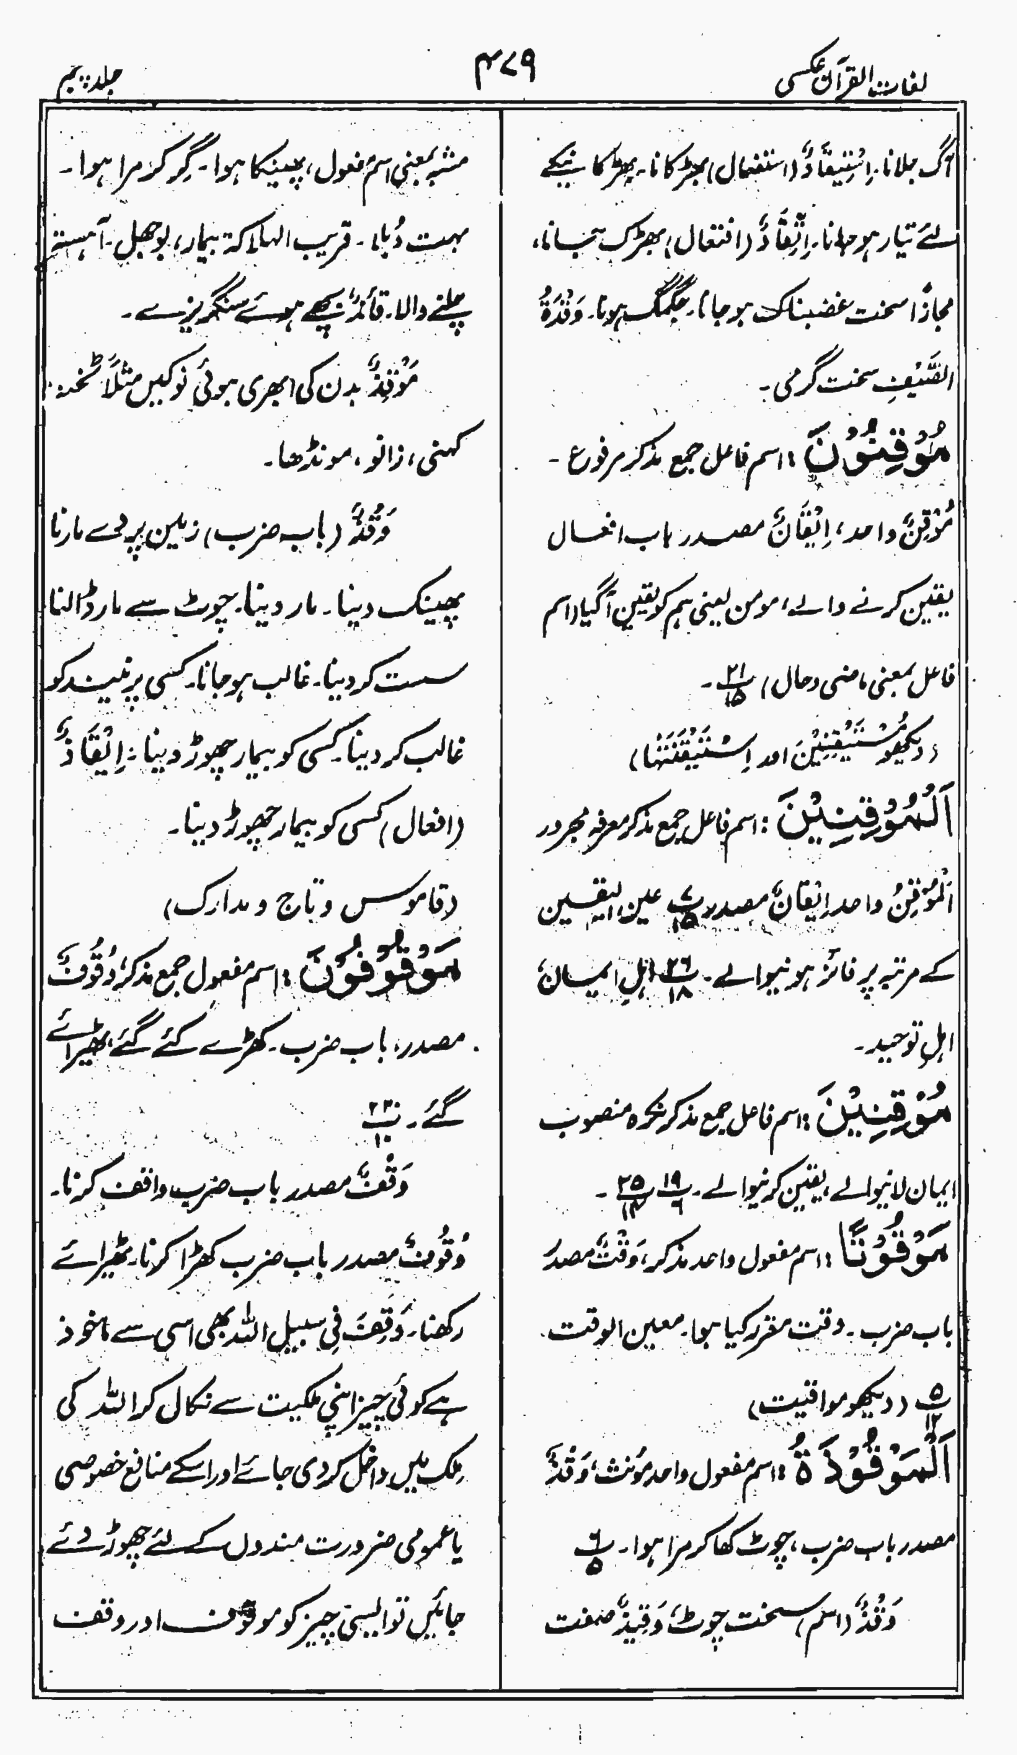 لغات القرآن عکسی
۴۷۹
جلد پنجم
آگ جلانا۔ اِسْتِیقَادٌ (استفعال) بھڑکانا۔ بھڑکا نیکے
لئے تیار ہو جانا۔ اِتِّقَادٌ (افتعال) بھڑک جانا،
مجازًا سخت غضبناک ہو جانا۔ جگمگ ہونا۔ وَقْدَۃُ
الصَّیْفِ سخت گرمی۔
مُوْقِنُوْنَ: اسم فاعل جمع مذکر مرفوع۔
مُوْقِنٌ واحد، اِیْقَانٌ مصدر باب افعال
یقین کرنے والے، مومن یعنی ہم کو یقین آگیا (اسم
فاعل بمعنی ماضی و حال) پ ۲۱/۱۵۔
(دیکھو مُسْتَیْقِنِیْنَ اور اِسْتَیْقَنَتْہَا)
اَلْمُوْقِنِیْنَ: اسم فاعل جمع مذکر معرفہ مجرور
اَلْمُوْقِنُ واحد اِیْقَانٌ مصدر پ ۷/۱۵ عین الیقین
کے مرتبہ پر فائز ہونیوالے۔ پ ۲۶/۱۸ اہلِ ایمان،
اہلِ توحید۔
مُوْقِنِیْنَ: اسم فاعل جمع مذکر نکرہ منصوب
ایمان لانیوالے، یقین کرنیوالے۔ پ ۱۹/۶ پ ۲۵/۱۴۔
مَوْقُوْتًا: اسم مفعول واحد مذکر، وَقْتٌ مصدر
باب ضرب۔ وقت مقرر کیا ہوا۔ معین الوقت۔
پ ۵/۱۲ (دیکھو مواقیت)
اَلْمَوْقُوْذَۃُ: اسم مفعول واحد مؤنث، وَقْذٌ
مصدر باب ضرب، چوٹ کھا کر مرا ہوا۔ پ ۶/۵
وَقْذٌ (اسم) سخت چوٹ، وَقِیْذٌ صفت
مشبہ بمعنی اسم مفعول، پھینکا ہوا۔ گر کر مرا ہوا۔
بہت دُبلا۔ قریب الہلاکۃ بیمار، بوجھل۔ آہستہ
چلنے والا۔ قائذٌ بچھے ہوئے سنگریزے۔
مَوْقِذٌ بدن کی ابھری ہوئی نوکیں مثلاً ٹخنہ،
کہنی، زانو، مونڈھا۔
وَقْذٌ (باب ضرب) زمین پر دے مارنا
پھینک دینا۔ مار دینا۔ چوٹ سے مار ڈالنا،
سست کر دینا۔ غالب ہو جانا۔ کسی پر نیند کو
غالب کر دینا۔ کسی کو بیمار چھوڑ دینا۔ اِیْقَاذٌ
(افعال) کسی کو بیمار چھوڑ دینا۔
(قاموس و تاج و مدارک)
مَوْقُوْفُوْنَ: اسم مفعول جمع مذکر، وُقُوْفٌ
مصدر، باب ضرب۔ کھڑے کئے گئے، ٹھیرائے
گئے۔ پ ۲۲/۱۰
وَقْفٌ مصدر باب ضرب واقف کرنا۔
وُقُوْفٌ مصدر باب ضرب کھڑا کرنا۔ ٹھیرائے
رکھنا۔ وَقِفَ فِی سبیل اللہ بھی اسی سے ماخوذ
ہے کوئی چیز اپنی ملکیت سے نکال کر اللہ کی
ملک میں داخل کر دی جائے اور اسکے منافع خصوصی
یا عمومی ضرورت مندوں کے لئے چھوڑ دئے
جائیں تو ایسی چیز کو موقوف اور وقف